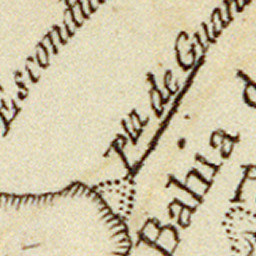 Escondid
Pta de Guan
Bahia d